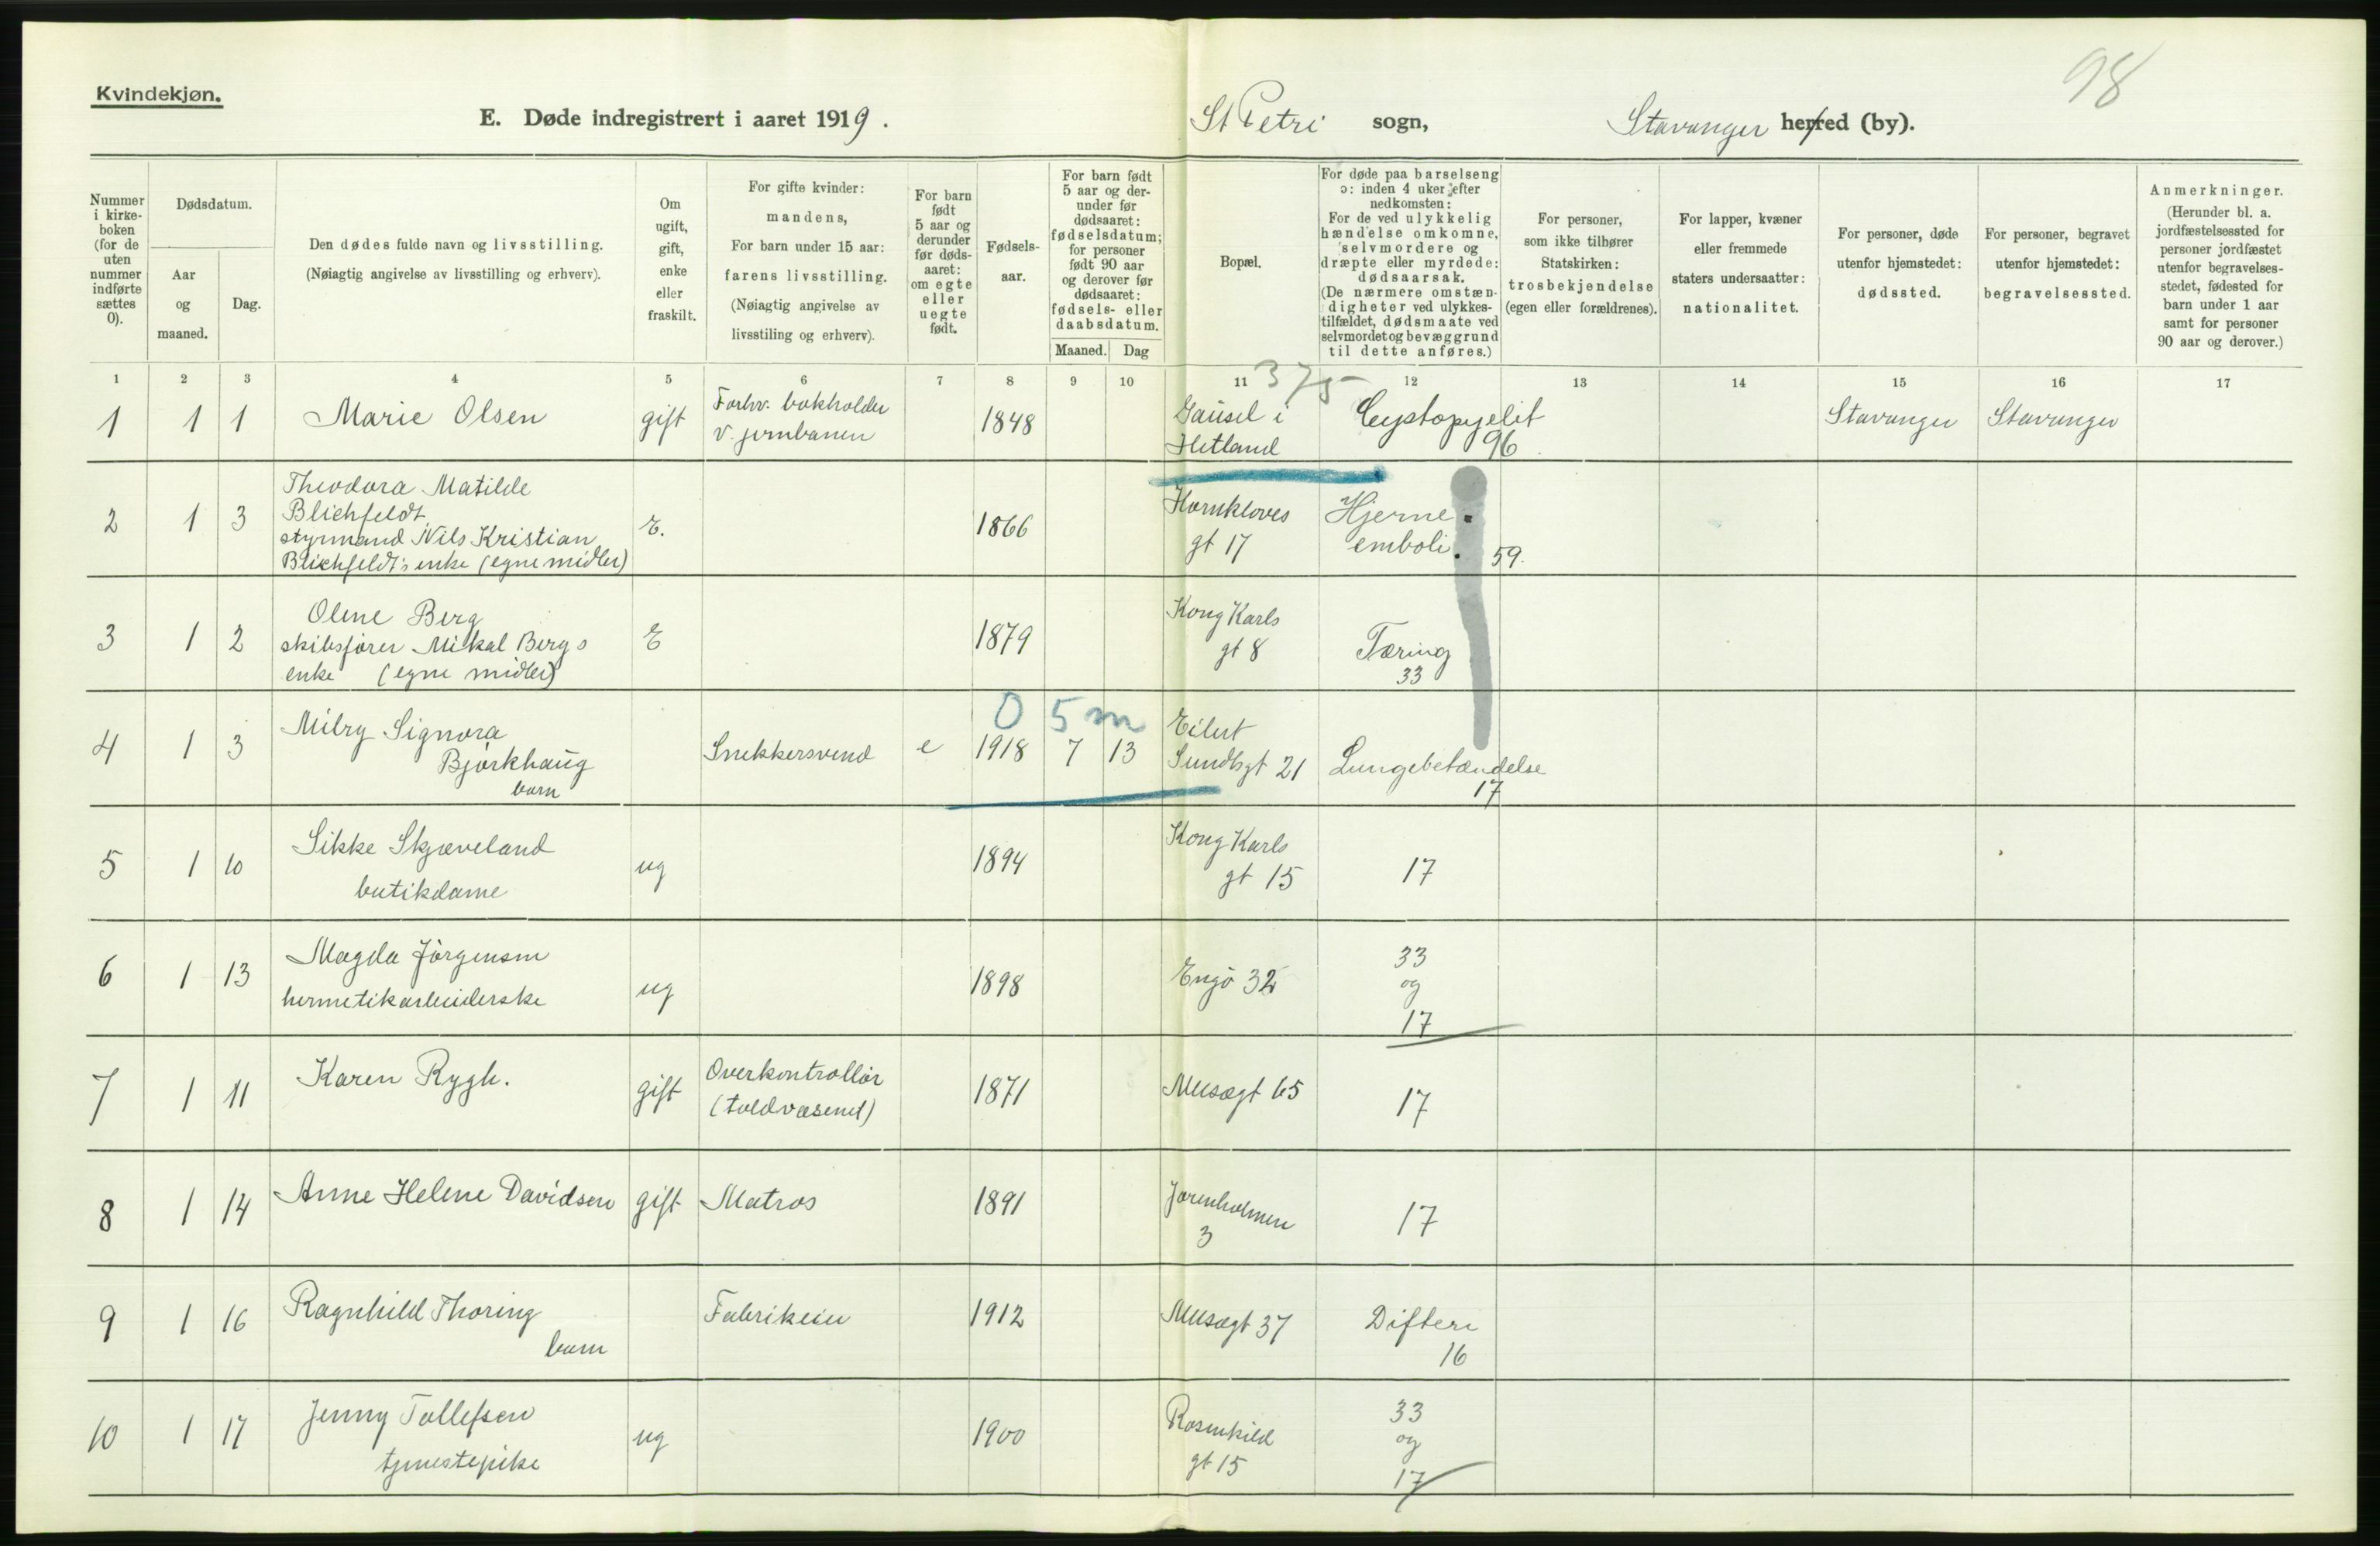 98
Kvindekjøn.
E. Døde indregistrert i aaret 1919.
St Petri sogn,
Stavanger herred (by).
Nummer i kirke-boken (for de uten nummer indførte sættes 0).
Dødsdatum.
Aar og maaned.
Dag.
Den dødes fulde navn og livsstilling.
(Nøiagtig angivelse av livsstilling og erhverv).
Om ugift, gift, enke eller fraskilt.
For gifte kvinder: mandens,
For barn under 15 aar: farens livsstilling.
(Nøiagtig angivelse av livsstiling og erhverv).
For barn født 5 aar og derunder før døds-aaret: om egte eller uegte født.
Fødsels-aar.
For barn født 5 aar og der-under før dødsaaret: fødselsdatum; for personer født 90 aar og derover før dødsaaret: fødsels- eller daabsdatum.
Maaned. Dag
Bopæl.
For døde paa barselseng ɔ: inden 4 uker efter nedkomsten:
For de ved ulykkelig hændelse omkomne, selvmordere og dræpte eller myrdede: dødsaarsak.
(De nærmere omstæn-digheter ved ulykkes-tilfældet, dødsmaate ved selvmordet og bevæggrund til dette anføres.)
For personer, som ikke tilhører Statskirken: trosbekjendelse (egen eller forældrenes).
For lapper, kvæner eller fremmede staters undersaatter: nationalitet.
For personer, døde utenfor hjemstedet: dødssted.
For personer, begravet utenfor hjemstedet: begravelsessted.
Anmerkninger.
(Herunder bl. a. jordfæstelsessted for personer jordfæstet utenfor begravelses-stedet, fødested for barn under 1 aar samt for personer 90 aar og derover.)
1 2 3 4 5 6 7 8 9 10 11 12 13 14 15 16 17
1 1 1 Marie Olsen gift Forhv. bokholder v. jernbanen 1848 Gausel i Hetland Cystopyelit 96 Stavanger Stavanger
2 1 3 Theodora Matilde Blichfeldt styrmand Nils Kristian Blichfeldt's enke (egne midler) E. 1866 Harnkloves gt 17 Hjerne emboli. 59.
3 1 2 Olene Berg skibsfører Mikal Bergs enke (egne midler) E 1879 Kong Karls gt 8 Tæring 33
0 5 m
4 1 3 Signora Bjørkhaug barn Snekkersvend e 1918 7 13 Eilert Sundtsgt 21 Lungebetændelse 17
5 1 10 Sikke Skjæveland butikdame ug 1894 Kong Karls gt 15 17
6 1 13 Magda Jörgensen hermetikarbeiderske ug 1898 Engö 32 33 og 17
7 1 11 Karen Rygh. gift Overkontrollør (toldvæsenet) 1871 Musægt 65 17
8 1 14 Anne Helene Davidsen gift Matros 1891 Jorenholmen 3 17
9 1 16 Ragnhild Thoring barn Fabrikeier 1912 Musægt 37 Difteri 16
10 1 17 Jenny Tollefsen tjenestepike ug 1900 Rosenkild gt 15 33 og 17